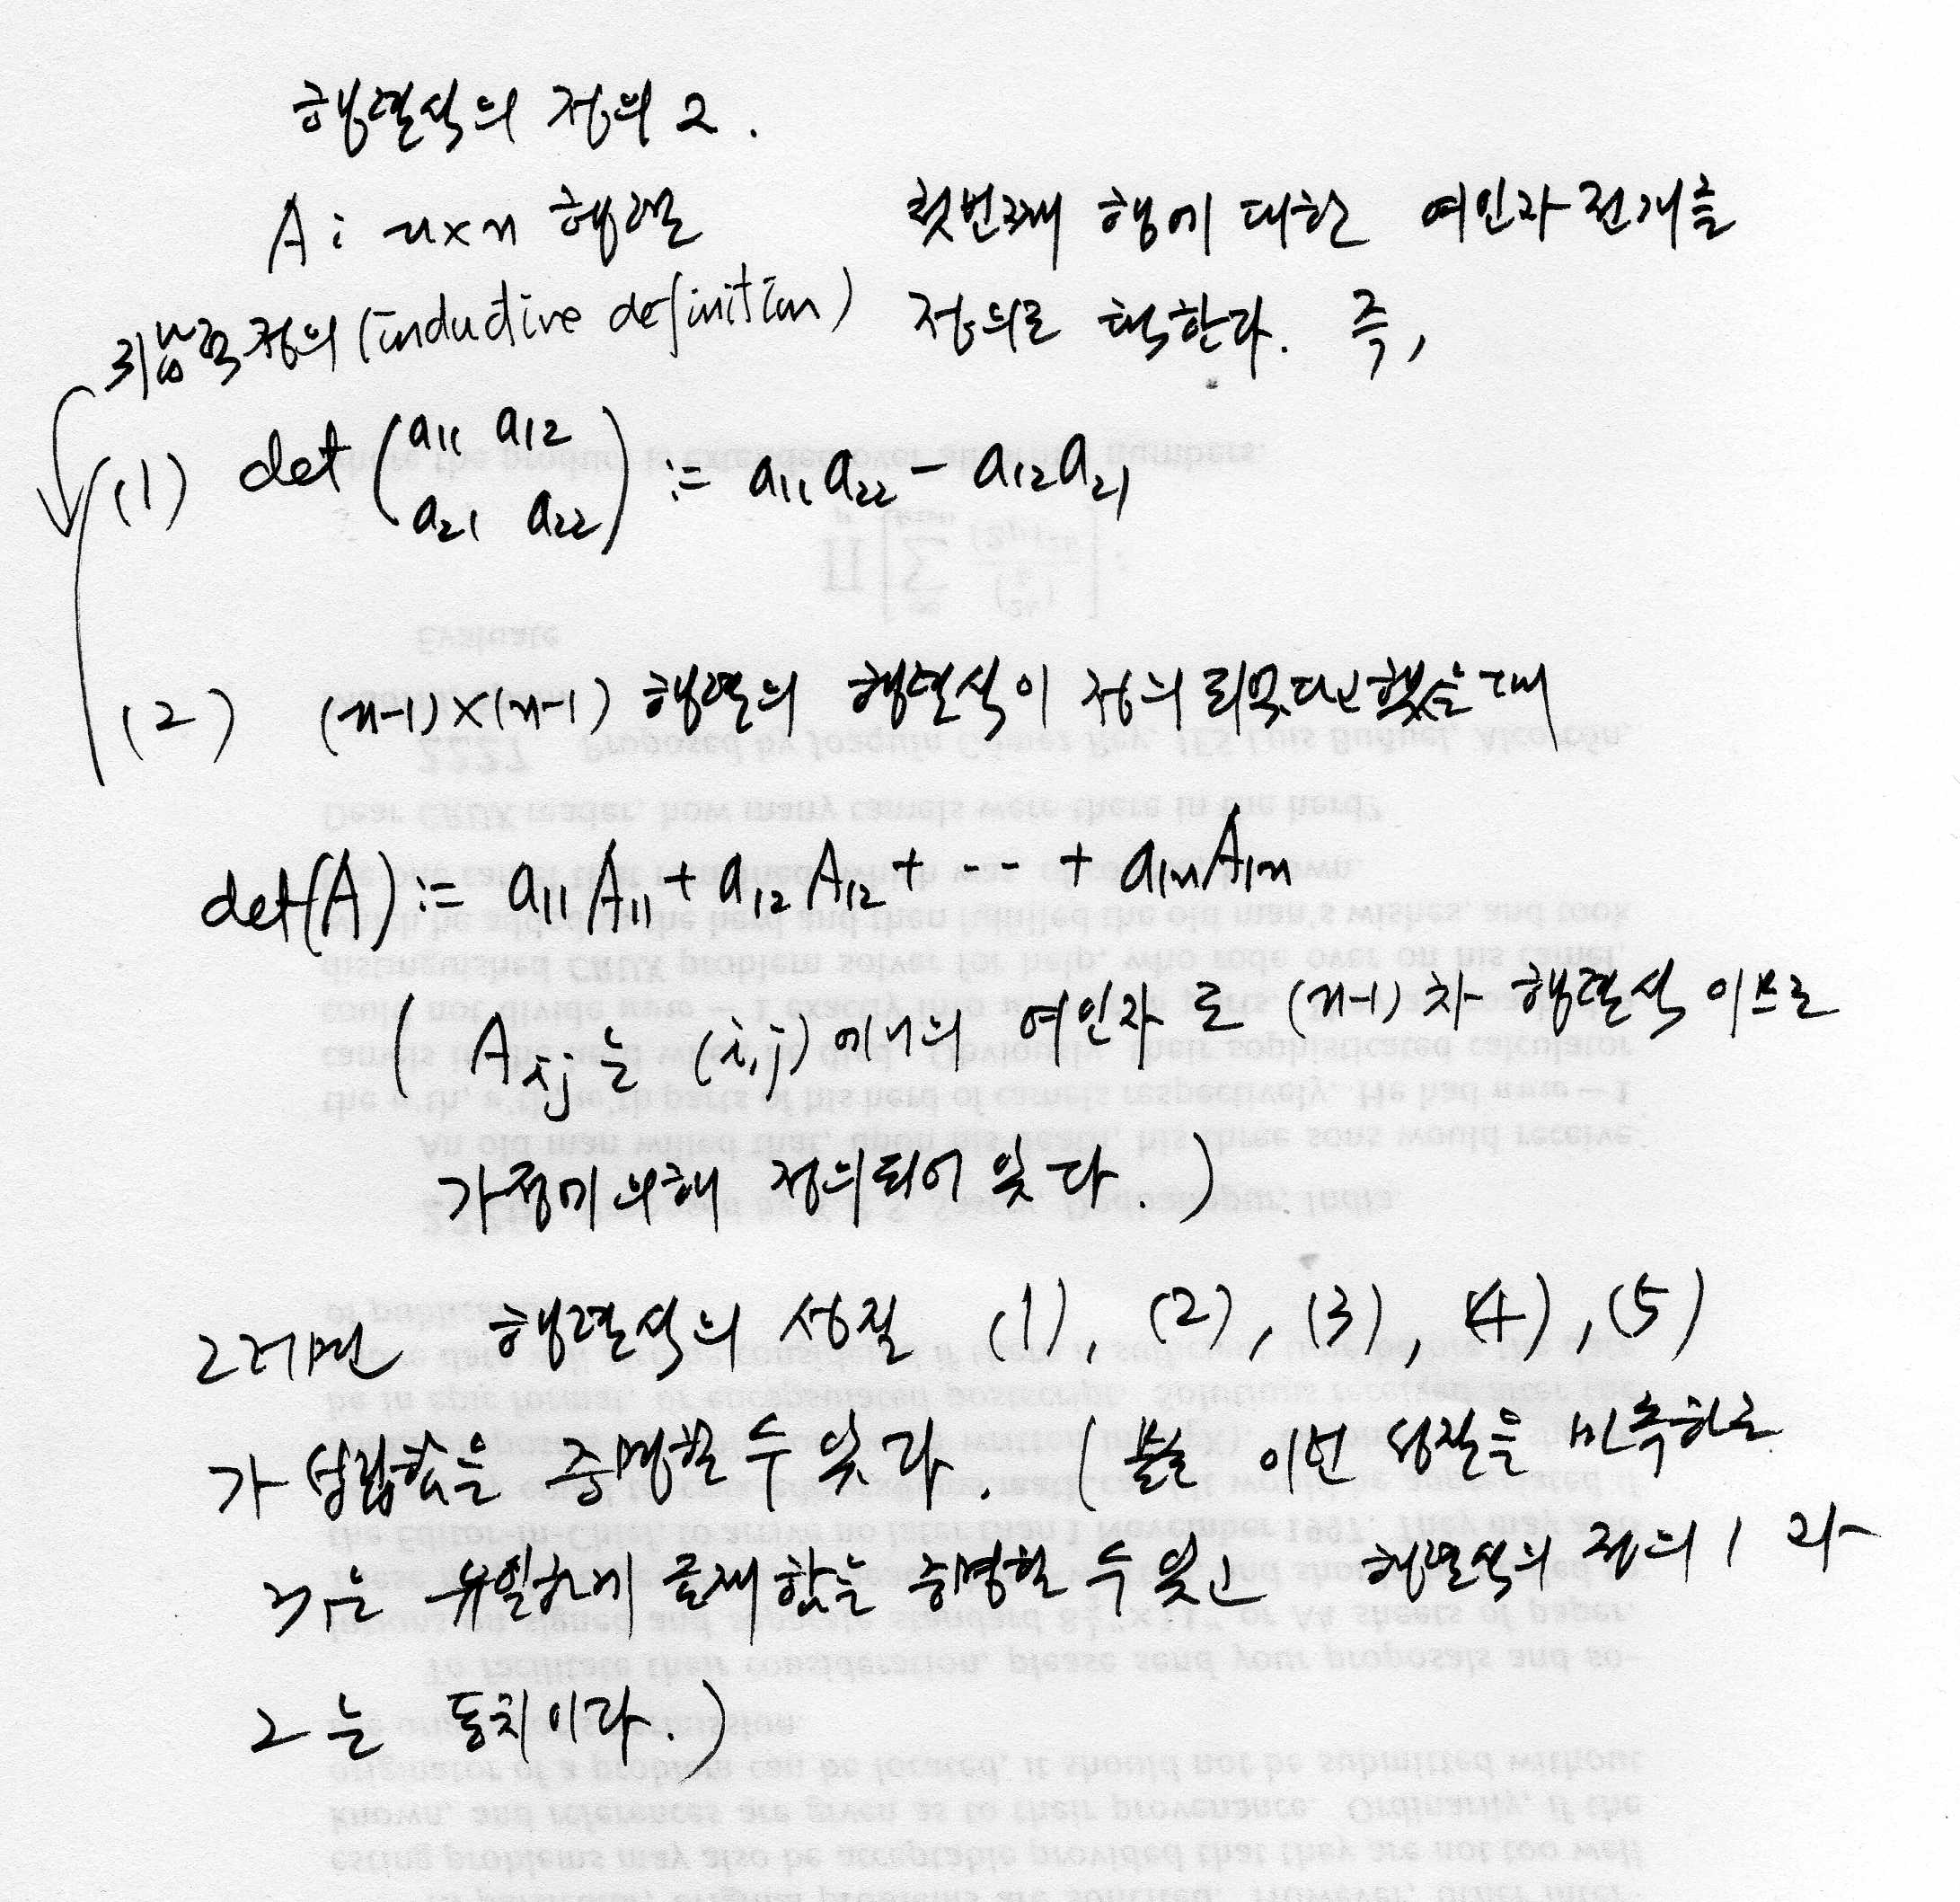 행렬식의 정의 2.
A : n×n 행렬 첫번째 행에 대한 여인자 전개를
귀납적 정의 (inductive definition) 정의로 택한다. 즉,
(1) det (a11 a12
a21 a22) := a11a22 - a12a21
(2) (n-1)×(n-1) 행렬의 행렬식이 정의되었다고 했을 때
det(A) := a11A11 + a12A12 + --- + a1nA1n
( Aij는 (i,j)에서의 여인자로 (n-1)차 행렬식이므로
가정에 의해 정의되어 있다. )
그러면 행렬식의 성질 (1), (2), (3), (4), (5)
가 성립함을 증명할 수 있다. (물론 이런 성질을 만족하는
것은 유일하게 존재함을 증명할 수 있고 행렬식의 정의 1 과
2는 동치이다.)